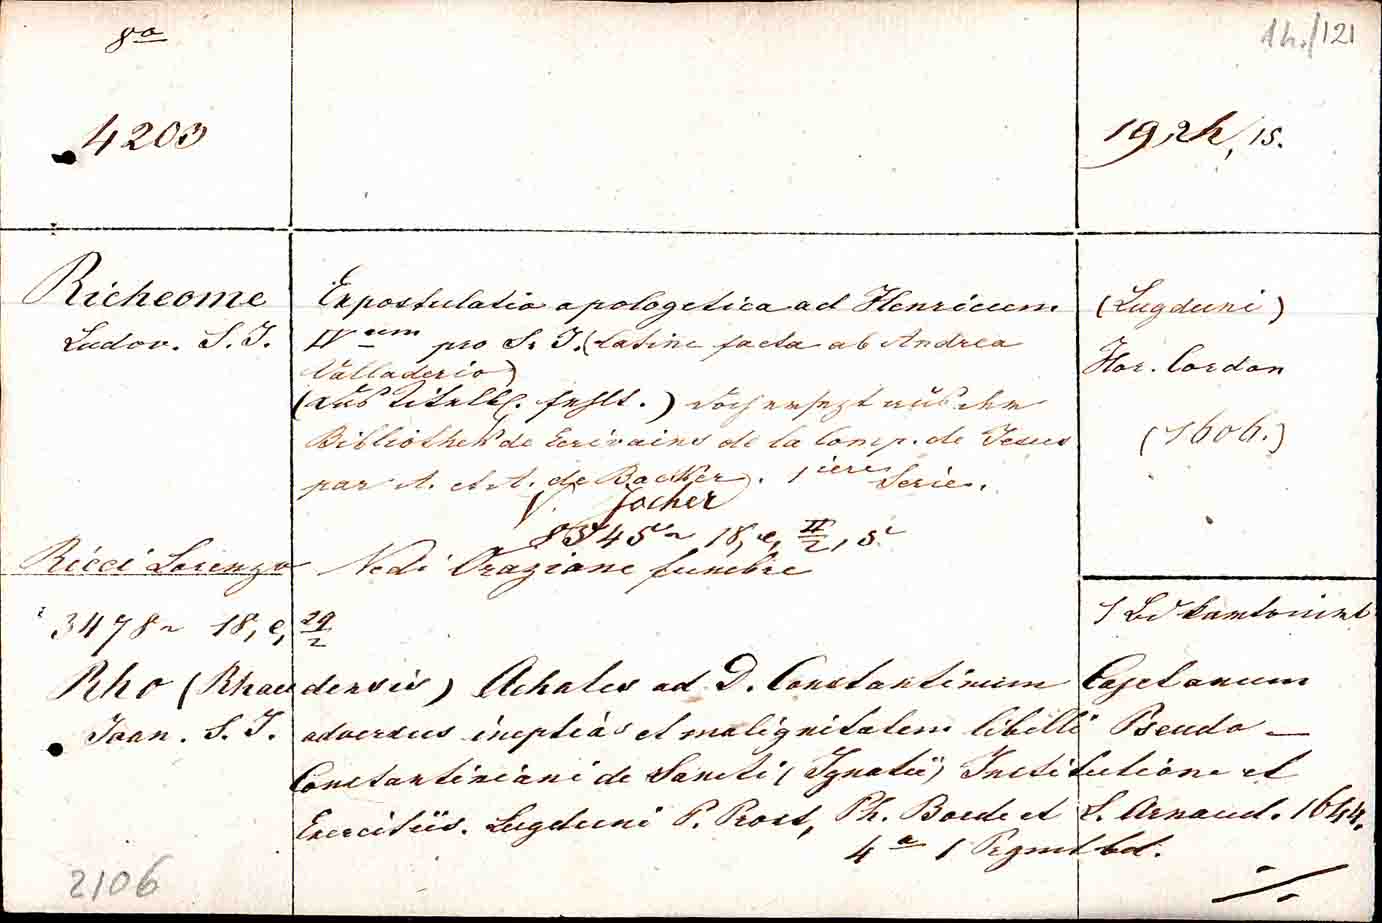 8º
4203
1h./121
19,2h, 15.
Richeome
Ludov. S. J.
Expostulatio apologetica ad Henricum
IV um pro S. J. (latine facta ab Andrea
Valladerio)
(Das Titelbl. fehlt.) doch ersezt aus der
Bibliothek de Ecrivains de la Comp. de Jesus
par A. et A. de Backer. 1iere Serie.
V. Jocher
(Lugduni)
Hor. Cordon
(1606.)
8345~ 18, e, II/2, 5.
Ricci Lorenzo Vedi Orazione funebre
3478~ 18, e, 29/2
1 Bd kartonirt
Rho (Rhaudensis) Achates ad D. Constantinum Cajetanum
Joan. S. J. adversus ineptias et malignitatem libelli Pseudo-
Constantiniani de Sancti (Ignatii) Institutione et
Exercitiis. Lugduni P. Prost, Ph. Borde et L. Arnaud. 1644.
4º 1 Pergmtbd.
2106